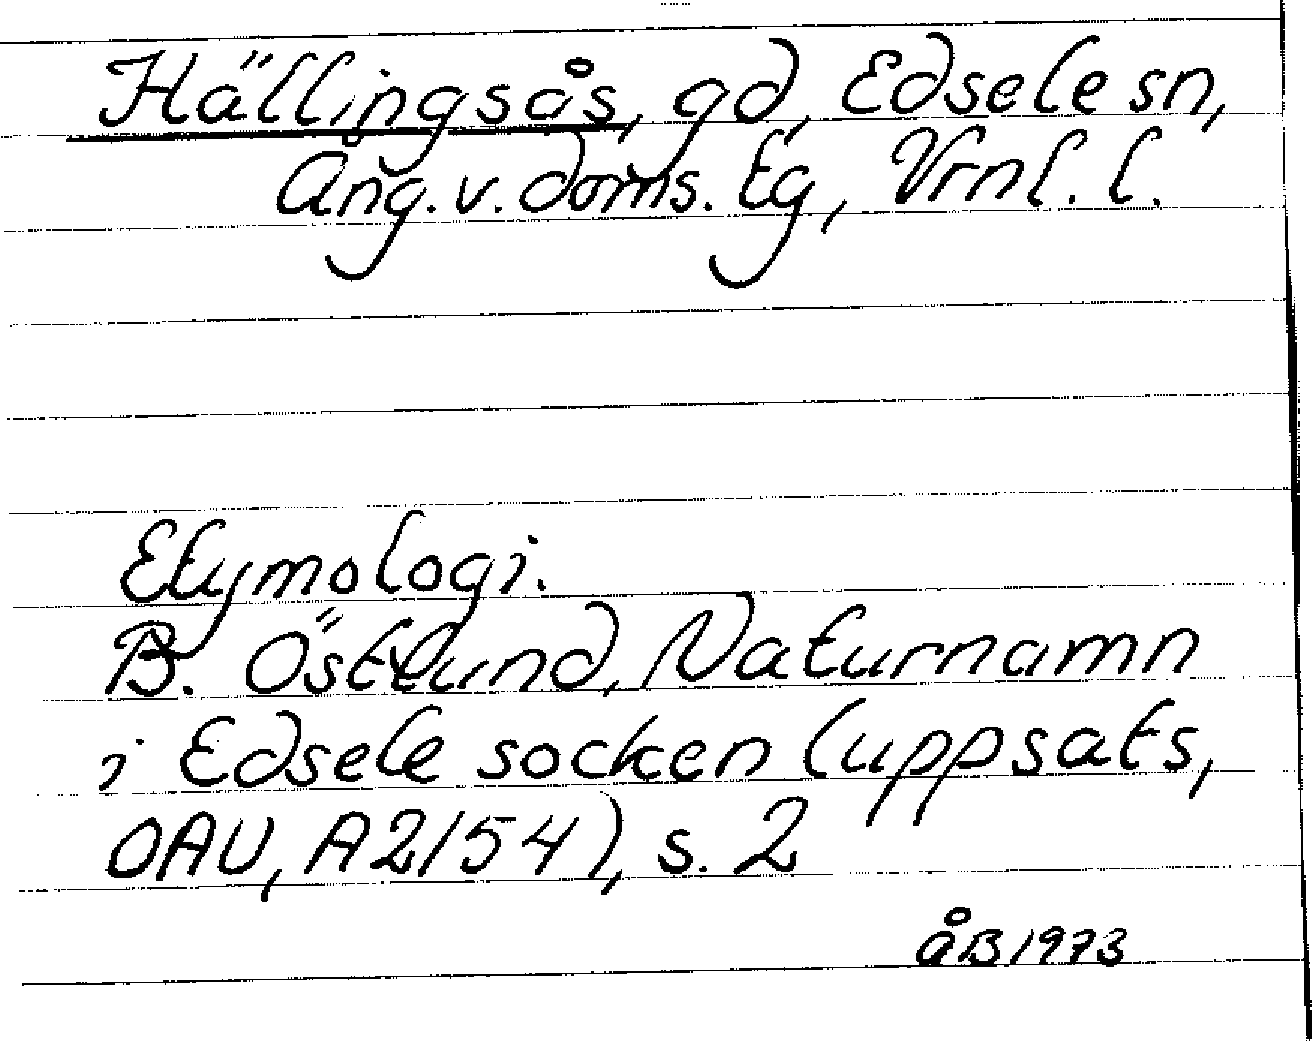 Hällingsås, gd, Edsele sn,
Ång. v. doms. tg, Vrnl. l.
Etymologi.
B. Östlund, Naturnamn
i Edsele socken (uppsats,
OAU, A2154), s. 2
åB 1973